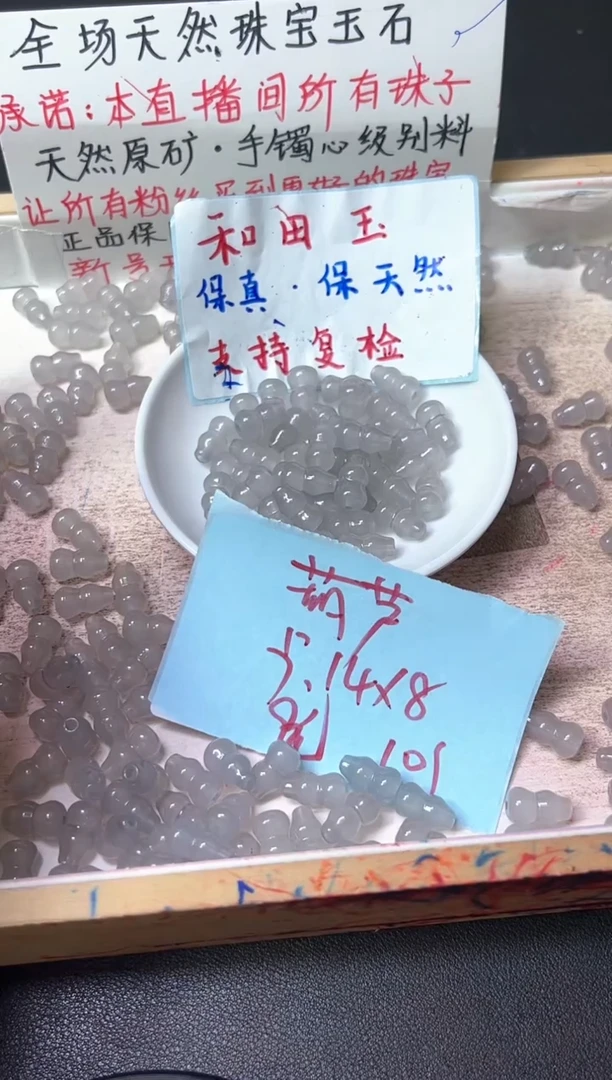 全场天然珠宝玉石
承诺:本直播间所有珠子
天然原矿·手镯心级别料
让所有粉丝买到更好的珠宝
正品保
新号
和田玉
保真·保天然
支持复检
葫芦
14×8
101